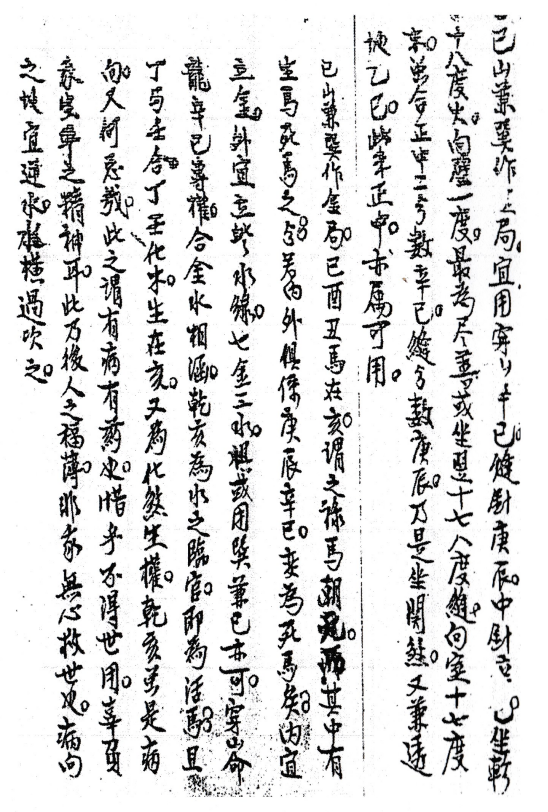 巳山兼巽作土局。宜用穿山辛巳縫針庚辰。中針立巳坐軫
十八度火。向壁一度。最為尽善。或坐翌十七八度。縫向室十七度
亦。虽合正中二分數辛巳。縫分數庚辰。乃是坐関煞。又兼遠
坡乙巳。此来正中。亦属可用。
巳山兼巽作金局。巳酉丑馬在亥。謂之祿馬朝元。而其中有
生馬死馬之分。若內外俱係庚辰辛巳。变為死馬矣。內宜
立金。外宜立水線。七金三水。或用巽兼巳亦可。穿山命
龍辛巳專權。合金水相涵。乾亥為水之臨官。即為活馬。且
丁与壬合。丁壬化木。生在亥。又為化煞生權。乾亥虽是病
向。又何忌哉。此之謂有病有药也。惜乎不得世用。辜負
我皇尋之精神耳。此乃後人之福薄。非我無心救世也。病向
之坡宜連水。橫過吹之。